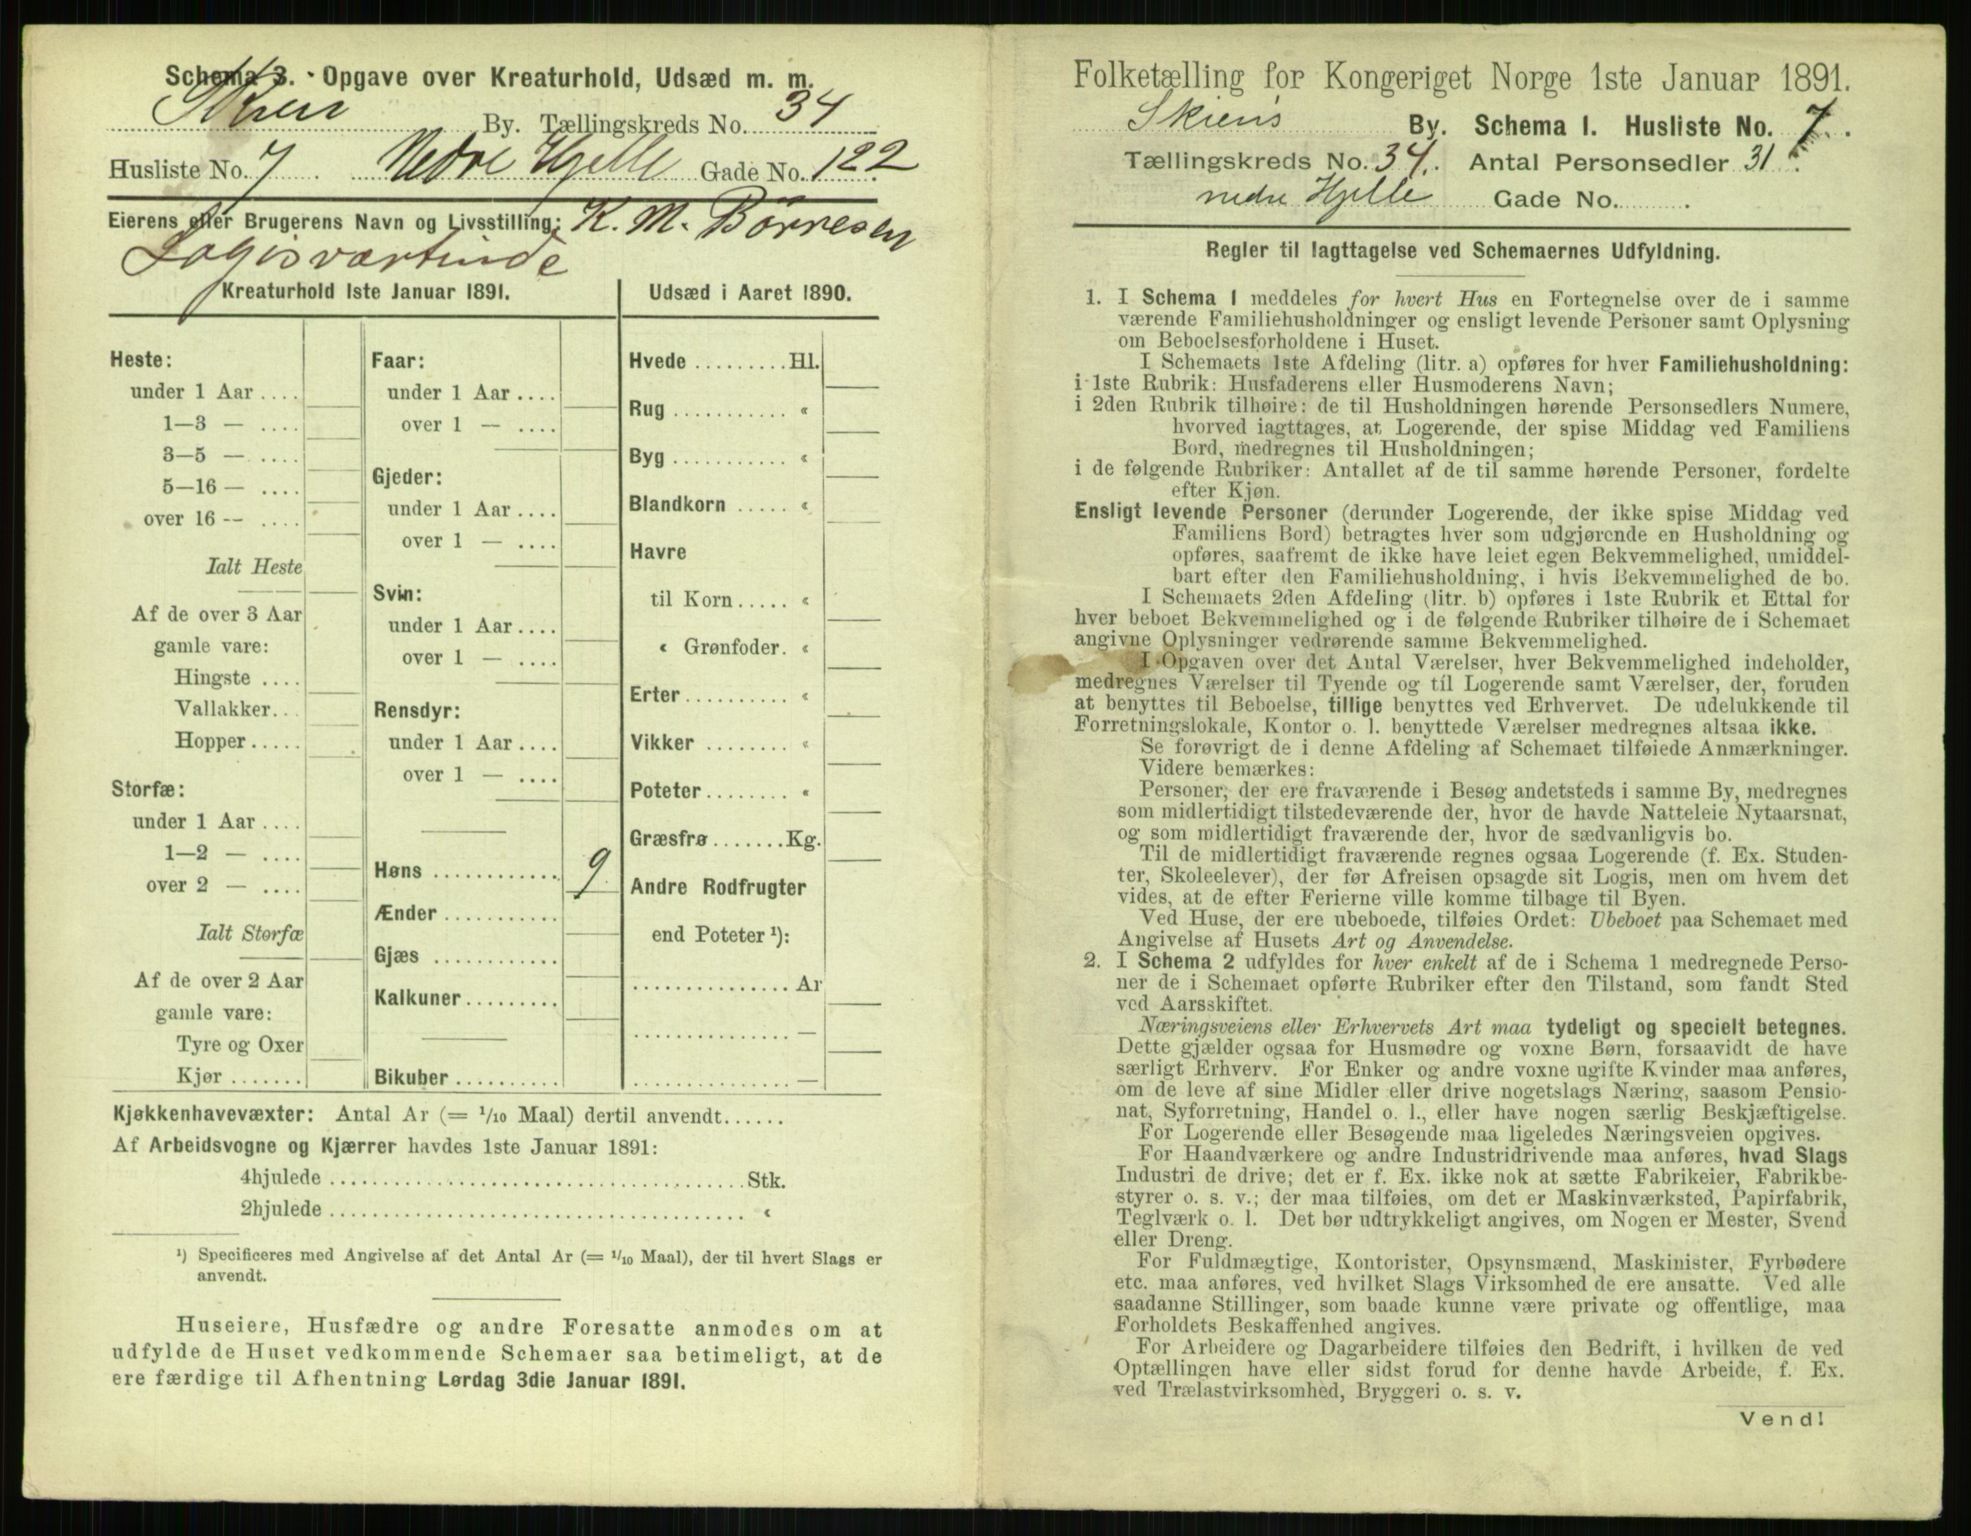 Schema 3. - Opgave over Kreaturhold, Udsæd m. m.
Skien By. Tællingskreds No. 34
Husliste No. 7 Nedre Hjelle Gade No. 122
Eierens eller Brugerens Navn og Livsstilling: K. M. Børresen
Logisværtinde
Kreaturhold 1ste Januar 1891.
Heste:
under 1 Aar ....
1—3 — ....
3—5 — ....
5—16 — ....
over 16 -- ....
Ialt Heste
Af de over 3 Aar
gamle vare:
Hingste ....
Vallakker...
Hopper.....
Storfæ:
under 1 Aar ....
1—2 — ....
over 2 — ....
Ialt Storfæ
Af de over 2 Aar
gamle vare:
Tyre og Oxer
Kjør .......
Faar:
under 1 Aar ....
over 1 — ....
Gjeder:
under 1 Aar ....
over 1 — ....
Svin:
under 1 Aar ....
over 1 — ....
Rensdyr:
under 1 Aar ....
over 1 — ....
Høns ............ 9
Ænder ...........
Gjæs ............
Kalkuner.........
Bikuber ..........
Udsæd i Aaret 1890.
Hvede .........Hl.
Rug ........... «
Byg ........... «
Blandkorn ..... «
Havre
til Korn..... «
« Grønfoder. «
Erter.......... «
Vikker ........ «
Poteter........ «
Græsfrø.......Kg.
Andre Rodfrugter
end Poteter ¹):
............... Ar
............... —
............... —
Kjøkkenhavevæxter: Antal Ar (= 1/10 Maal) dertil anvendt......
Af Arbeidsvogne og Kjærrer havdes 1ste Januar 1891:
4hjulede ....................................... Stk.
2hjulede ....................................... «
¹) Specificeres med Angivelse af det Antal Ar (= 1/10 Maal), der til hvert Slags er
anvendt.
Huseiere, Husfædre og andre Foresatte anmodes om at
udfylde de Huset vedkommende Schemaer saa betimeligt, at de
ere færdige til Afhentning Lørdag 3die Januar 1891.
Folketælling for Kongeriget Norge 1ste Januar 1891.
Skiens By. Schema 1. Husliste No. 7.
Tællingskreds No. 34. Antal Personsedler 31.
nedre Hjelle Gade No. .
Regler til Iagttagelse ved Schemaernes Udfyldning.
1. I Schema 1 meddeles for hvert Hus en Fortegnelse over de i samme
værende Familiehusholdninger og ensligt levende Personer samt Oplysning
om Beboelsesforholdene i Huset.
I Schemaets 1ste Afdeling (litr. a) opføres for hver Familiehusholdning:
i 1ste Rubrik: Husfaderens eller Husmoderens Navn;
i 2den Rubrik tilhøire: de til Husholdningen hørende Personsedlers Numere,
hvorved iagttages, at Logerende, der spise Middag ved Familiens
Bord, medregnes til Husholdningen;
i de følgende Rubriker: Antallet af de til samme hørende Personer, fordelte
efter Kjøn.
Ensligt levende Personer (derunder Logerende, der ikke spise Middag ved
Familiens Bord) betragtes hver som udgjørende en Husholdning og
opføres, saafremt de ikke have leiet egen Bekvemmelighed, umiddel-
bart efter den Familiehusholdning, i hvis Bekvemmelighed de bo.
I Schemaets 2den Afdeling (litr. b) opføres i 1ste Rubrik et Ettal for
hver beboet Bekvemmelighed og i de følgende Rubriker tilhøire de i Schemaet
angivne Oplysninger vedrørende samme Bekvemmelighed.
I Opgaven over det Antal Værelser, hver Bekvemmelighed indeholder,
medregnes Værelser til Tyende og til Logerende samt Værelser, der, foruden
at benyttes til Beboelse, tillige benyttes ved Erhvervet. De udelukkende til
Forretningslokale, Kontor o. l. benyttede Værelser medregnes altsaa ikke.
Se forøvrigt de i denne Afdeling af Schemaet tilføiede Anmærkninger.
Videre bemærkes:
Personer, der ere fraværende i Besøg andetsteds i samme By, medregnes
som midlertidigt tilstedeværende der, hvor de havde Natteleie Nytaarsnat,
og som midlertidigt fraværende der, hvor de sædvanligvis bo.
Til de midlertidigt fraværende regnes ogsaa Logerende (f. Ex. Studen-
ter, Skoleelever), der før Afreisen opsagde sit Logis, men om hvem det
vides, at de efter Ferierne ville komme tilbage til Byen.
Ved Huse, der ere ubeboede, tilføies Ordet: Ubeboet paa Schemaet med
Angivelse af Husets Art og Anvendelse.
2. I Schema 2 udfyldes for hver enkelt af de i Schema 1 medregnede Perso-
ner de i Schemaet opførte Rubriker efter den Tilstand, som fandt Sted
ved Aarsskiftet.
Næringsveiens eller Erhvervets Art maa tydeligt og specielt betegnes.
Dette gjælder ogsaa for Husmødre og voxne Børn, forsaavidt de have
særligt Erhverv. For Enker og andre voxne ugifte Kvinder maa anføres,
om de leve af sine Midler eller drive nogetslags Næring, saasom Pensio-
nat, Syforretning, Handel o. l., eller have nogen særlig Beskjæftigelse.
For Logerende eller Besøgende maa ligeledes Næringsveien opgives.
For Haandværkere og andre Industridrivende maa anføres, hvad Slags
Industri de drive; det er f. Ex. ikke nok at sætte Fabrikeier, Fabrikbe-
styrer o. s. v.; der maa tilføies, om det er Maskinværksted, Papirfabrik,
Teglværk o. l. Det bør udtrykkeligt angives, om Nogen er Mester, Svend
eller Dreng.
For Fuldmægtige, Kontorister, Opsynsmænd, Maskinister, Fyrbødere
etc. maa anføres, ved hvilket Slags Virksomhed de ere ansatte. Ved alle
saadanne Stillinger, som baade kunne være private og offentlige, maa
Forholdets Beskaffenhed angives.
For Arbeidere og Dagarbeidere tilføies den Bedrift, i hvilken de ved
Optællingen have eller sidst forud for denne havde Arbeide, f. Ex.
ved Trælastvirksomhed, Bryggeri o. s. v.
Vend!